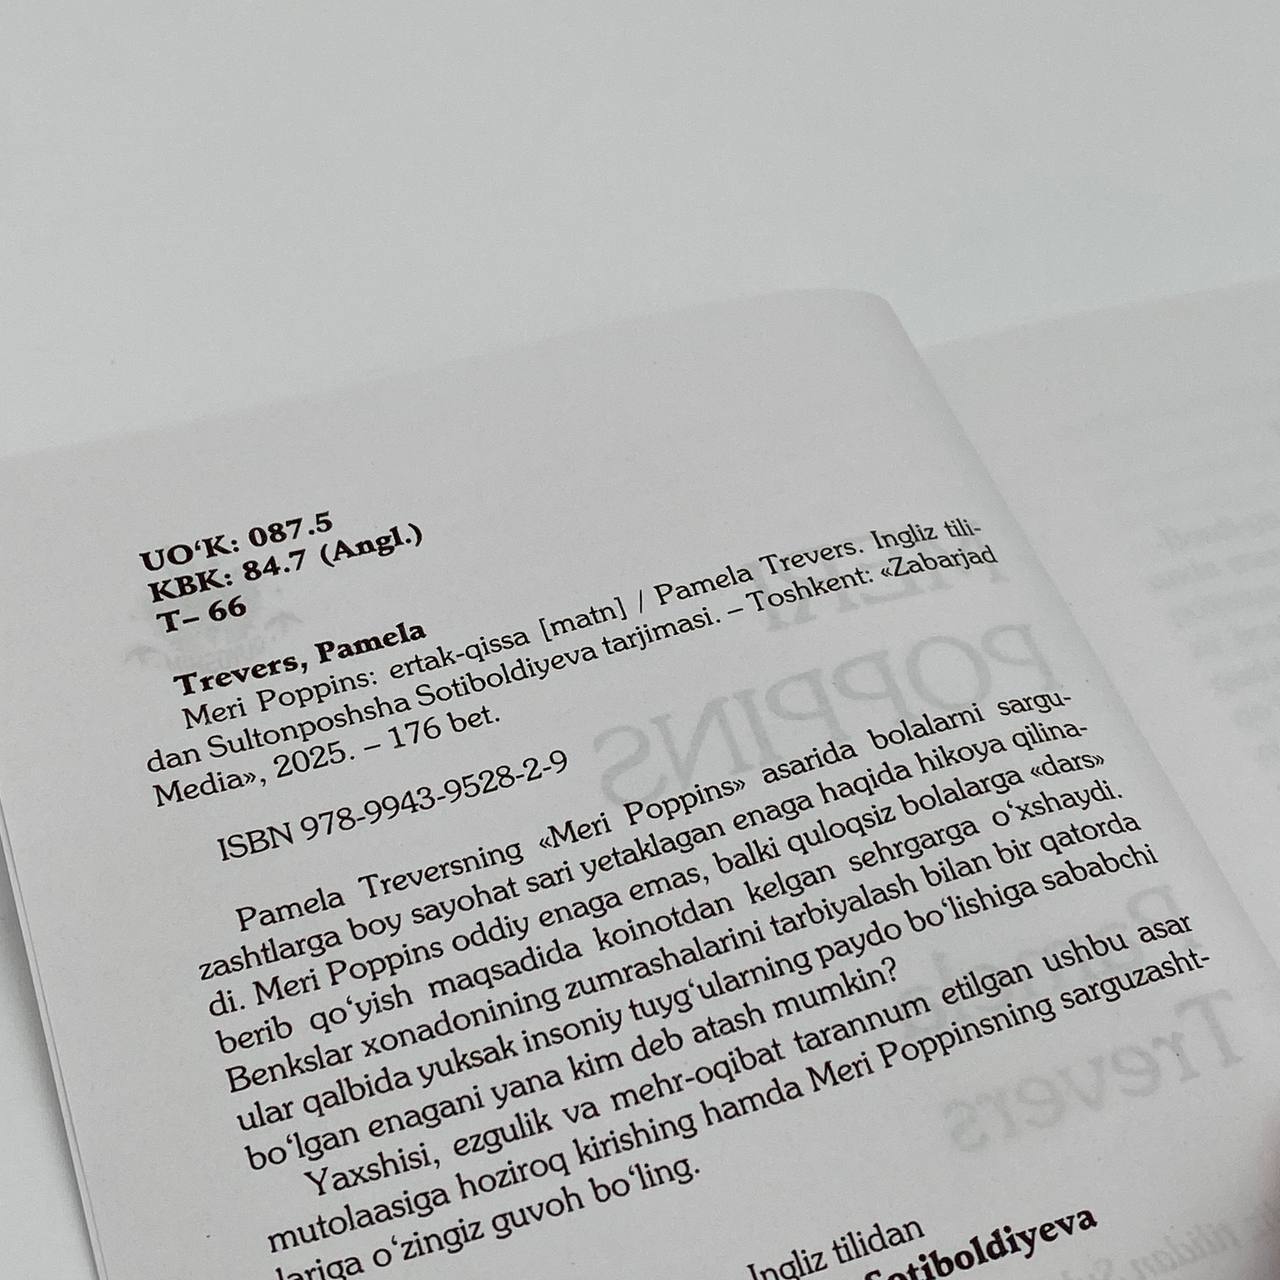 UO‘K: 087.5
KBK: 84.7 (Angl.)
T– 66
Trevers, Pamela
Meri Poppins: ertak-qissa [matn] / Pamela Trevers. Ingliz tili-
dan Sultonposhsha Sotiboldiyeva tarjimasi. – Toshkent: «Zabarjad
Media», 2025. – 176 bet.
ISBN 978-9943-9528-2-9
Pamela Treversning «Meri Poppins» asarida bolalarni sargu-
zashtlarga boy sayohat sari yetaklagan enaga haqida hikoya qilina-
di. Meri Poppins oddiy enaga emas, balki quloqsiz bolalarga «dars»
berib qo‘yish maqsadida koinotdan kelgan sehrgarga o‘xshaydi.
Benkslar xonadonining zumrashalarini tarbiyalash bilan bir qatorda
ular qalbida yuksak insoniy tuyg‘ularning paydo bo‘lishiga sababchi
bo‘lgan enagani yana kim deb atash mumkin?
Yaxshisi, ezgulik va mehr-oqibat tarannum etilgan ushbu asar
mutolaasiga hoziroq kirishing hamda Meri Poppinsning sarguzasht-
lariga o‘zingiz guvoh bo‘ling.
Ingliz tilidan
Sotiboldiyeva
POPPINS
Pamela
Trevers